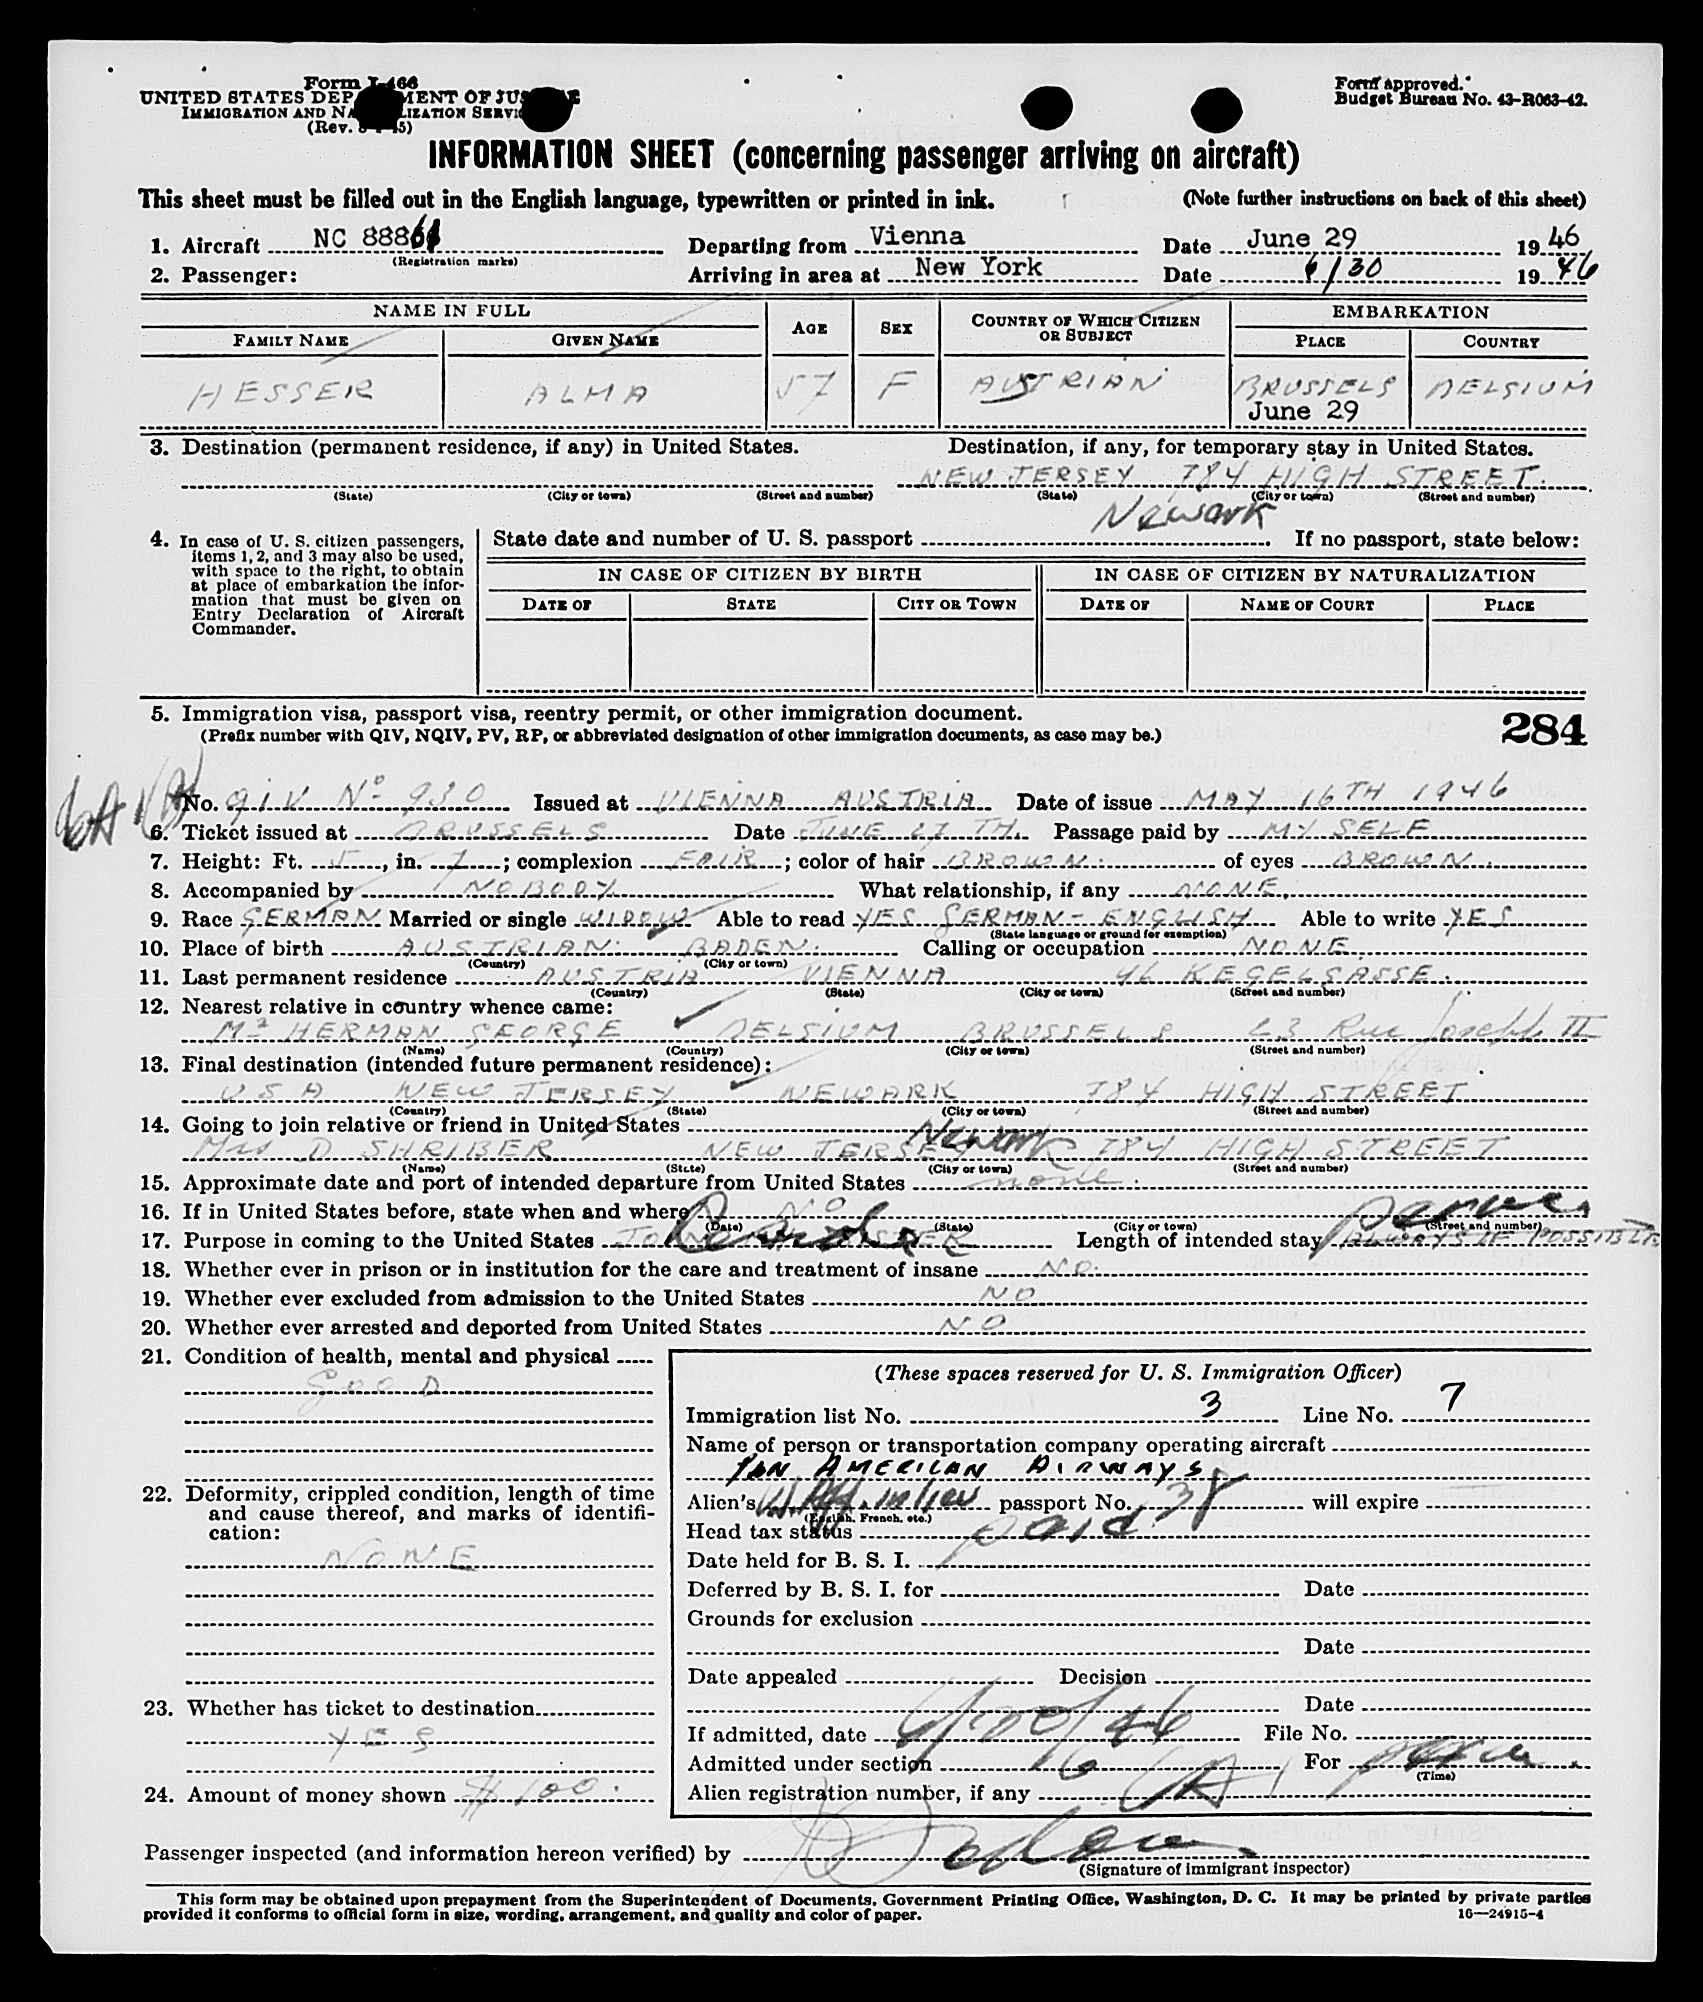 Form I-466
UNITED STATES DEPARTMENT OF JUSTICE
IMMIGRATION AND NATURALIZATION SERVICE
(Rev. 5)
Form Approved.
Budget Bureau No. 43-R063-42.
INFORMATION SHEET (concerning passenger arriving on aircraft)
This sheet must be filled out in the English language, typewritten or printed in ink. (Note further instructions on back of this sheet)
1. Aircraft NC 88861 Departing from Vienna Date June 29 1946
(Registration marks)
2. Passenger: Arriving in area at New York Date 6/30 1946
NAME IN FULL AGE SEX COUNTRY OF WHICH CITIZEN OR SUBJECT EMBARKATION
FAMILY NAME GIVEN NAME PLACE COUNTRY
HESSER ALMA 57 F AUSTRIAN BRUSSELS BELGIUM
June 29
3. Destination (permanent residence, if any) in United States. Destination, if any, for temporary stay in United States.
NEW JERSEY 784 HIGH STREET.
(State) (City or town) (Street and number) (State) (City or town) (Street and number)
Newark
4. In case of U. S. citizen passengers, items 1, 2, and 3 may also be used, with space to the right, to obtain at place of embarkation the information that must be given on Entry Declaration of Aircraft Commander.
State date and number of U. S. passport If no passport, state below:
IN CASE OF CITIZEN BY BIRTH IN CASE OF CITIZEN BY NATURALIZATION
DATE OF STATE CITY OR TOWN DATE OF NAME OF COURT PLACE
5. Immigration visa, passport visa, reentry permit, or other immigration document.
(Prefix number with QIV, NQIV, PV, RP, or abbreviated designation of other immigration documents, as case may be.)
284
No. QIV No 930 Issued at VIENNA AUSTRIA Date of issue MAY 16TH 1946
6. Ticket issued at BRUSSELS Date JUNE 27 TH. Passage paid by MY SELF
7. Height: Ft. 5, in. 7; complexion FAIR; color of hair BROWN. of eyes BROWN.
8. Accompanied by NOBODY What relationship, if any NONE.
9. Race GERMAN Married or single WIDOW Able to read YES GERMAN-ENGLISH Able to write YES
(State language or ground for exemption)
10. Place of birth AUSTRIAN. BADEN. Calling or occupation NONE.
(Country) (City or town)
11. Last permanent residence AUSTRIA VIENNA 46 KEGELGASSE.
(Country) (State) (City or town) (Street and number)
12. Nearest relative in country whence came:
Mr HERMAN GEORGE BELGIUM BRUSSELS 23 Rue Joseph II
(Name) (Country) (City or town) (Street and number)
13. Final destination (intended future permanent residence):
USA NEW JERSEY NEWARK 784 HIGH STREET
(Country) (State) (City or town) (Street and number)
14. Going to join relative or friend in United States
Mrs D SHRIBER NEW JERSEY Newark 784 HIGH STREET
(Name) (State) (City or town) (Street and number)
15. Approximate date and port of intended departure from United States none.
16. If in United States before, state when and where NO
(Date) (State) (City or town) (Street and number)
17. Purpose in coming to the United States Length of intended stay ALWAYS IF POSSIBLE
18. Whether ever in prison or in institution for the care and treatment of insane NO.
19. Whether ever excluded from admission to the United States NO
20. Whether ever arrested and deported from United States NO
21. Condition of health, mental and physical
GOOD
22. Deformity, crippled condition, length of time and cause thereof, and marks of identification:
NONE
23. Whether has ticket to destination
YES
24. Amount of money shown $100.
(These spaces reserved for U. S. Immigration Officer)
Immigration list No. 3 Line No. 7
Name of person or transportation company operating aircraft
PAN AMERICAN AIRWAYS
Alien's Aff. in lieu passport No. 38 will expire
(English, French, etc.)
Head tax status paid
Date held for B. S. I.
Deferred by B. S. I. for Date
Grounds for exclusion
Date
Date appealed Decision
Date
If admitted, date 6/30/46 File No.
Admitted under section For perm.
(Time)
Alien registration number, if any
Passenger inspected (and information hereon verified) by
(Signature of immigrant inspector)
This form may be obtained upon prepayment from the Superintendent of Documents, Government Printing Office, Washington, D. C. It may be printed by private parties
provided it conforms to official form in size, wording, arrangement, and quality and color of paper. 16—24915-4